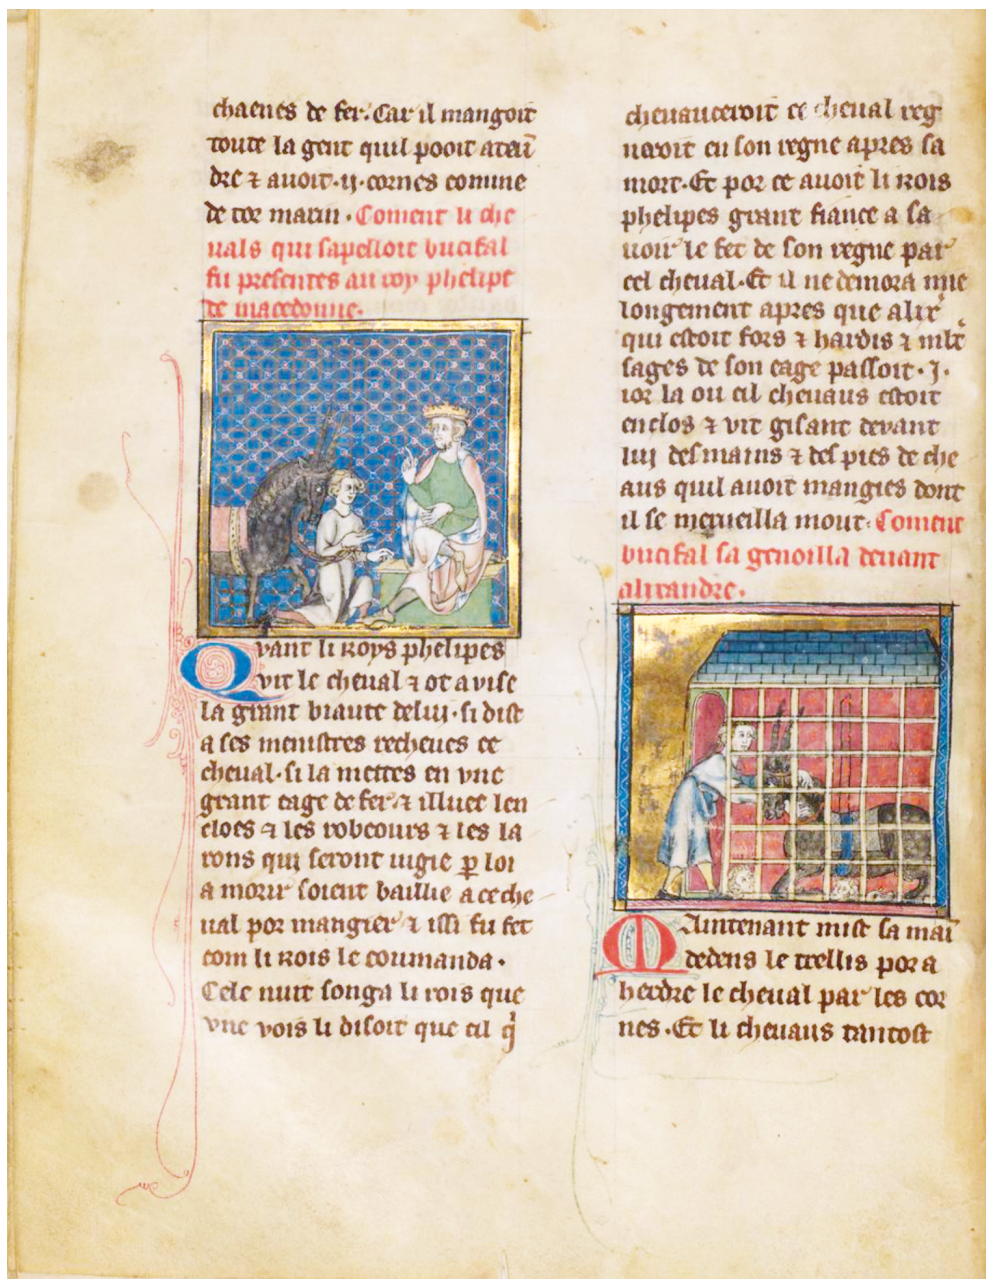 chaenes de fer. Car il mangoit
toute la gent quil pooit ataĩ
dre ⁊ avoit .ij. cornes comme
de tor marin. Coment li che
vals qui sapelloit bucifal
fu presentes au roy phelipe
de macedonne.
Qvant li roys phelipes
vit le cheval ⁊ ot avise
la grant biaute deluj. si dist
a ses menistres recheues ce
cheval. si la mettes en vne
grant cage de fer. ⁊ illuec len
cloes ⁊ les robeours ⁊ les la
rons qui seront iugie ꝑ loi
a morir soient baillie a ce che
ual por mangier ⁊ issi fu fet
com li rois le coumanda.
Cele nuit songa li rois que
vne vois li disoit que cil qͥ
cheuauceroit ce cheual reg
neroit en son regne apres sa
mort. Et por ce auoit li rois
phelipes grant fiance a sa
uoir le fet de son regne par
cel cheual. Et il ne demora mie
longement apres que alixͬ
qui estoit fors ⁊ hardis ⁊ ml̃t
sages de son eage passoit .j.
ior la ou cil cheuaus estoit
enclos ⁊ vit gisant deuant
luj des mains ⁊ des pies de che
aus quil auoit mangies dont
il se merueilla mout. Coment
bucifal sa genoilla deuant
alixandre.
Maintenant mist sa maĩ
dedens le trellis por a
herdre le cheual par les cor
nes. Et li cheuaus tantost